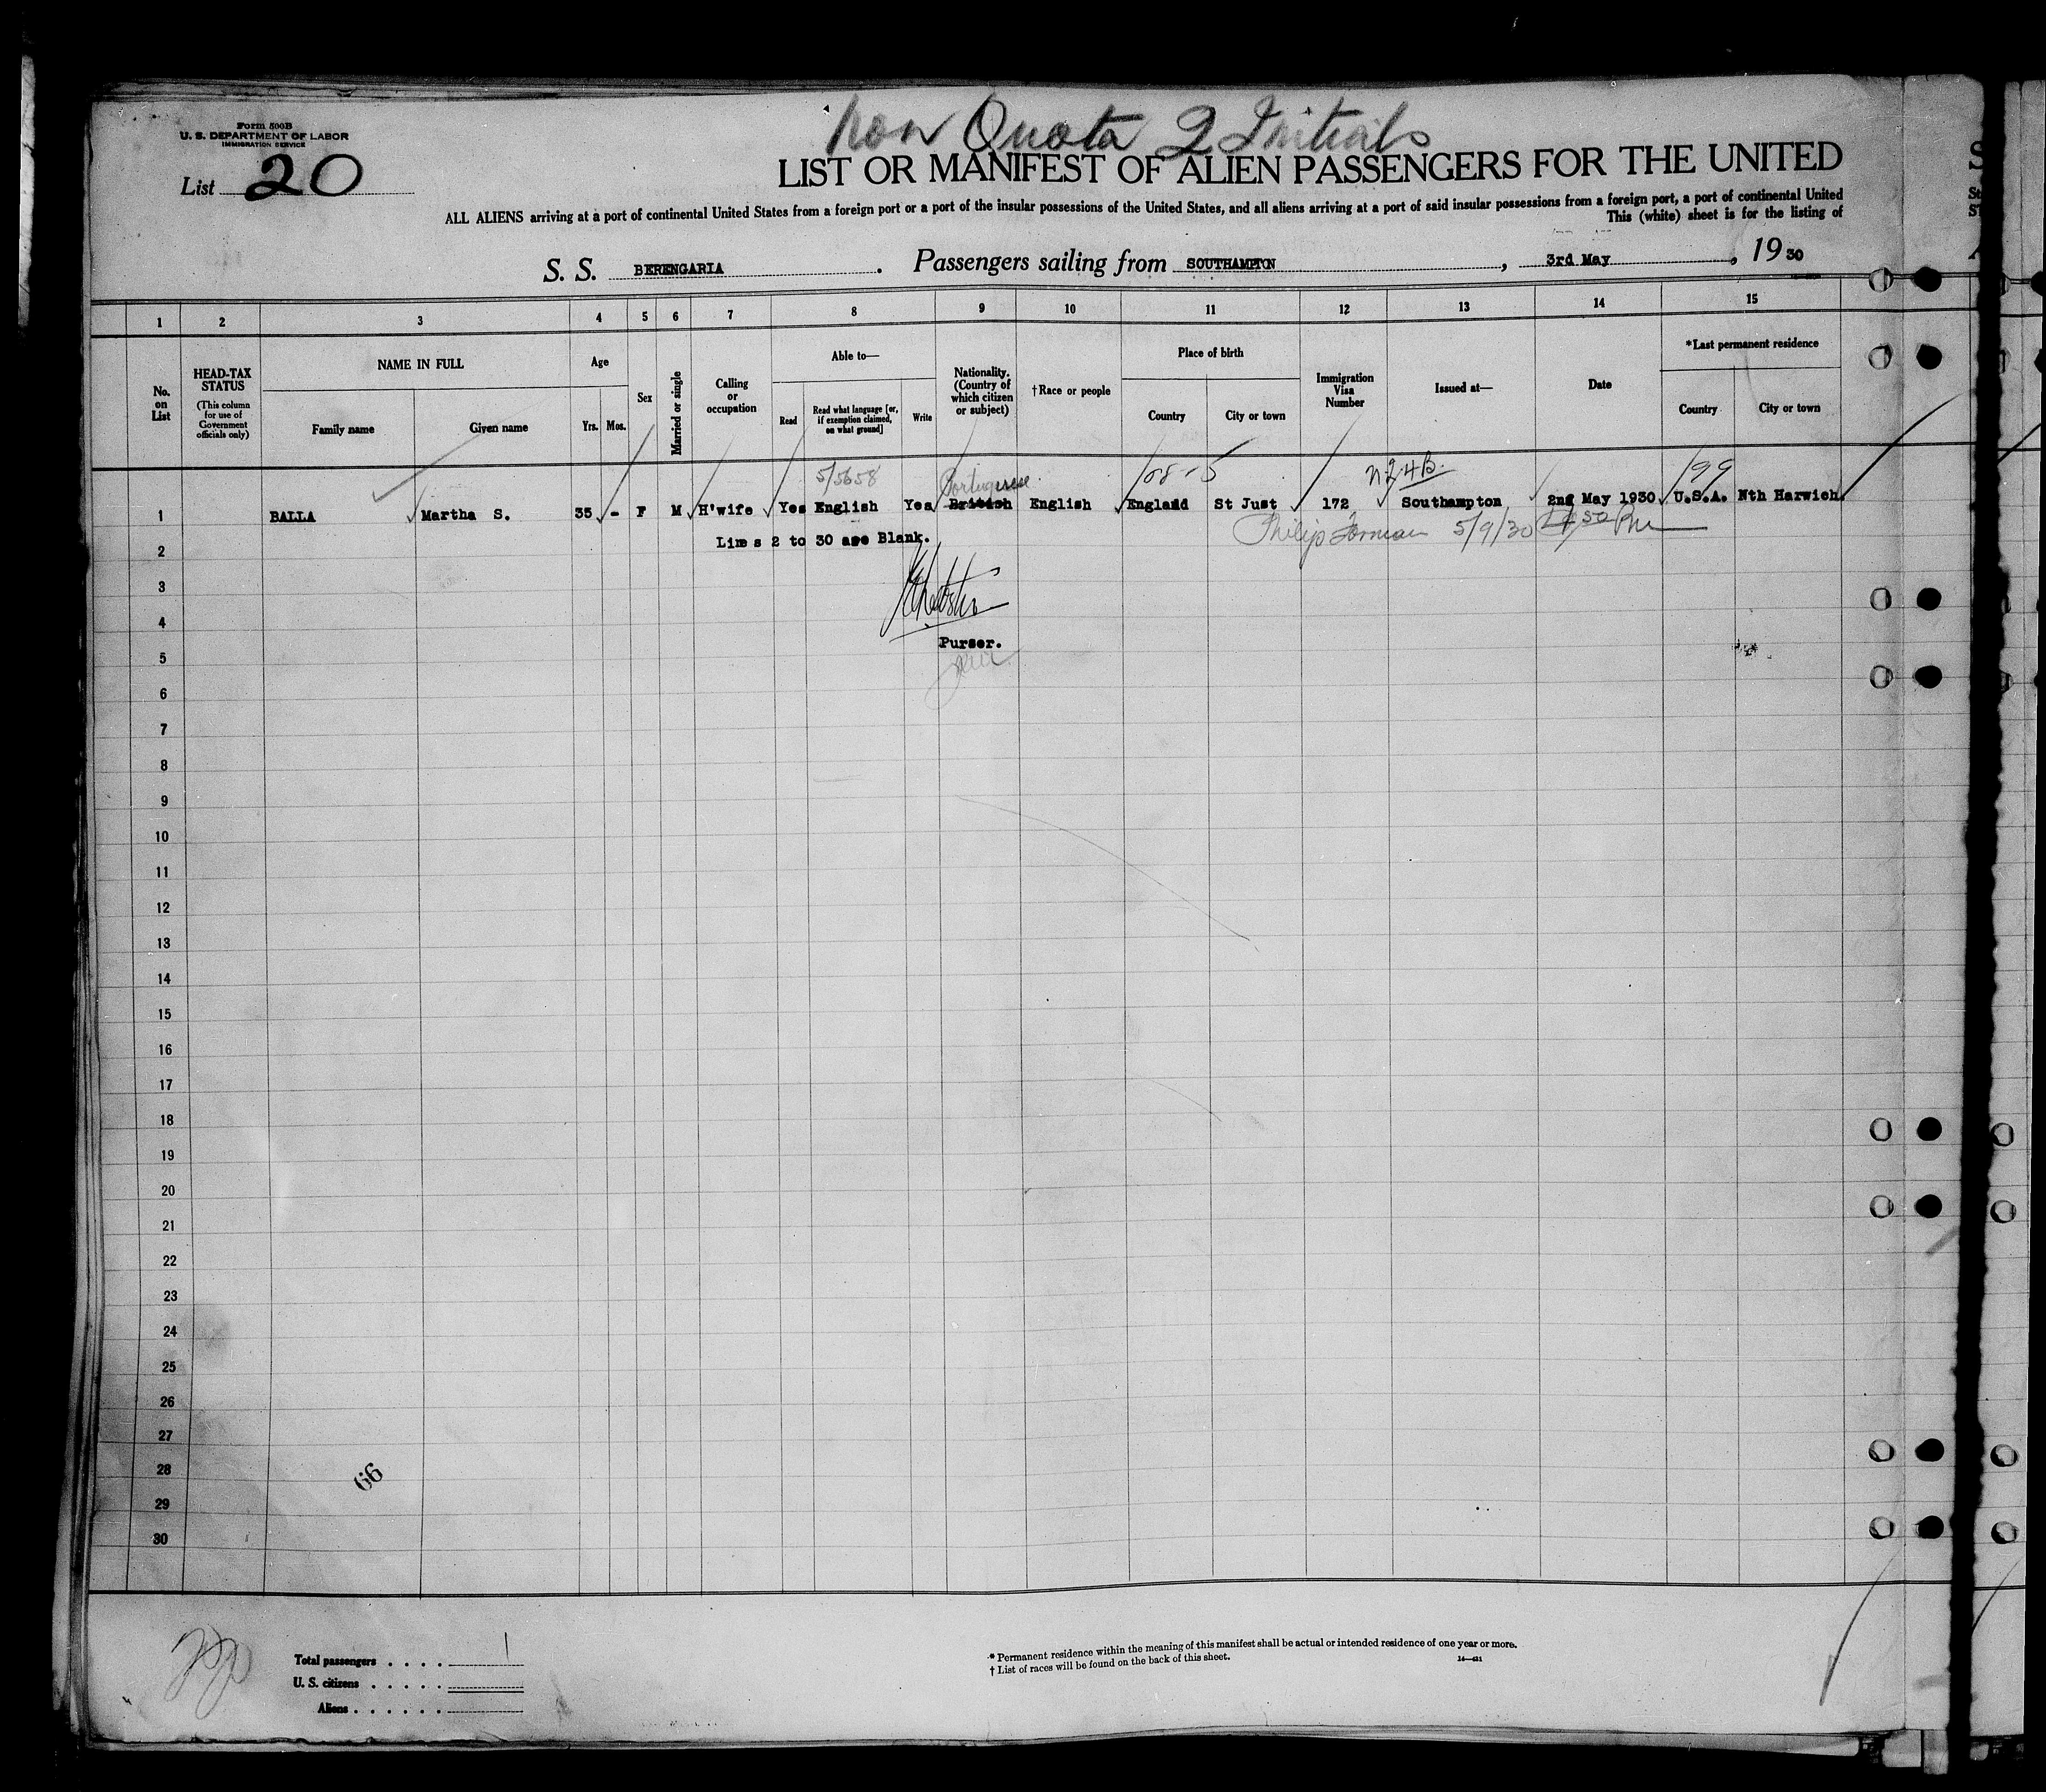 Form 500B
U. S. DEPARTMENT OF LABOR
IMMIGRATION SERVICE
List 20
Non Quota 2 Initials
LIST OR MANIFEST OF ALIEN PASSENGERS FOR THE UNITED
ALL ALIENS arriving at a port of continental United States from a foreign port or a port of the insular possessions of the United States, and all aliens arriving at a port of said insular possessions from a foreign port, a port of continental United
This (white) sheet is for the listing of
S. S. BERENGARIA. Passengers sailing from SOUTHAMPTON, 3rd May, 1930
1 2 3 4 5 6 7 8 9 10 11 12 13 14 15
No. on List
HEAD-TAX STATUS
(This column for use of Government officials only)
NAME IN FULL
Family name Given name
Age
Yrs. Mos.
Sex
Married or single
Calling or occupation
Able to—
Read
Read what language [or, if exemption claimed, on what ground]
Write
Nationality. (Country of which citizen or subject)
†Race or people
Place of birth
Country City or town
Immigration Visa Number
Issued at—
Date
*Last permanent residence
Country City or town
5/5658 Portuguese N.Q.4B. 199
1 BALLA Martha S. 35 - F M H'wife Yes English Yes British English England St Just 172 Southampton 2nd May 1930 U.S.A. Nth Harwich
Philip Forman 5/9/30
2 Lines 2 to 30 are Blank.
3
4
Purser.
5
6
7
8
9
10
11
12
13
14
15
16
17
18
19
20
21
22
23
24
25
26
27
28
66
29
30
Total passengers . . . . 1
U. S. citizens . . . . .
Aliens . . . . . .
* Permanent residence within the meaning of this manifest shall be actual or intended residence of one year or more.
† List of races will be found on the back of this sheet.
14—421